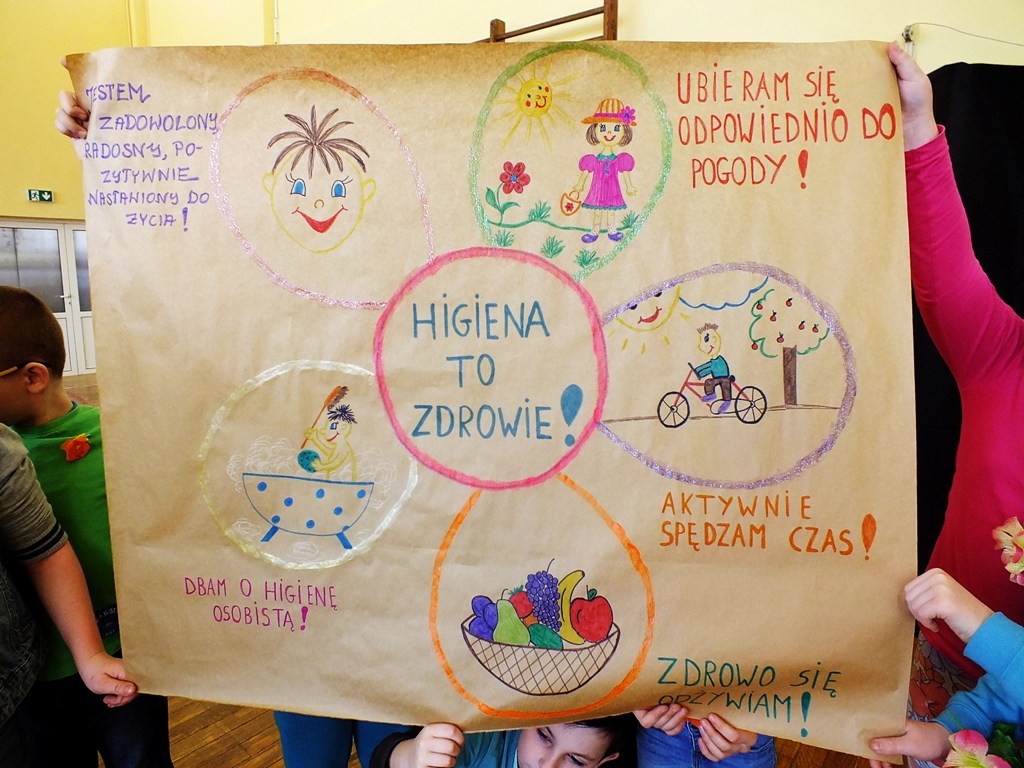 JESTEM
ZADOWOLONY
RADOSNY, PO-
ZYTYWNIE
NASTAWIONY DO
ŻYCIA!
UBIERAM SIĘ
ODPOWIEDNIO DO
POGODY!
HIGIENA
TO
ZDROWIE!
AKTYWNIE
SPĘDZAM CZAS!
DBAM O HIGIENĘ
OSOBISTĄ!
ZDROWO SIĘ
ODŻYWIAM!